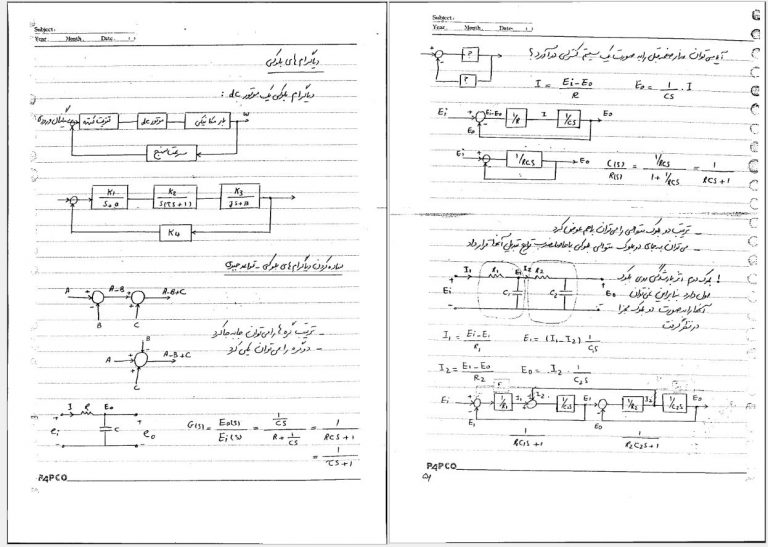 Subject:
Year. Month. Date. ( )
دیاگرام های بلوکی
دیاگرام بلوکی یک موتور dc :
تقویت کننده
موتور dc
بار مکانیکی
ω
سرعت سنج
K1 / S+a
K2 / S(τS+1)
K3 / JS+B
K4
ساده کردن دیاگرام های بلوکی - قواعد جبری
A A-B A-B+C
B C
B
A A-B+C
C
- ترتیب گره ها را می توان جابه جا کرد
- دو گره را می توان یکی کرد
I R Eo
ei C eo
G(s) = Eo(s)/Ei(s) = (1/CS)/(R + 1/CS) = 1/(RCS+1)
= 1/(τS+1)
PAPCO
Subject:
Year. Month. Date. ( )
آیا می توان مدار را به صورت یک سیستم کنترلی در آورد؟
?
?
I = (Ei-Eo)/R Eo = 1/CS . I
Ei Ei-Eo 1/R I 1/CS Eo
Eo
Ei 1/RCS Eo
C(s)/R(s) = (1/RCS)/(1+1/RCS) = 1/(RCS+1)
- ترتیب دو بلوک متوالی را می توان باهم عوض کرد
- می توان به جای دو بلوک متوالی بلوکی با حاصلضرب توابع تبدیل آنها قرار داد
I1 R1 E1 I2 R2
Ei C1 C2 Eo
! بلوک دوم اثر بارگذاری روی بلوک
اول دارد بنابراین نمی توان
آنها را به صورت دو بلوک مجزا
در نظر گرفت
I1 = (Ei-E1)/R1 E1 = (I1-I2) 1/CS
I2 = (E1-Eo)/R2 Eo = I2 . 1/C2S
Ei 1/R1 I1 I2 1/C1S E1 1/R2 I2 1/C2S Eo
E1 Eo
1/(RC1S+1) 1/(R2C2S+1)
PAPCO